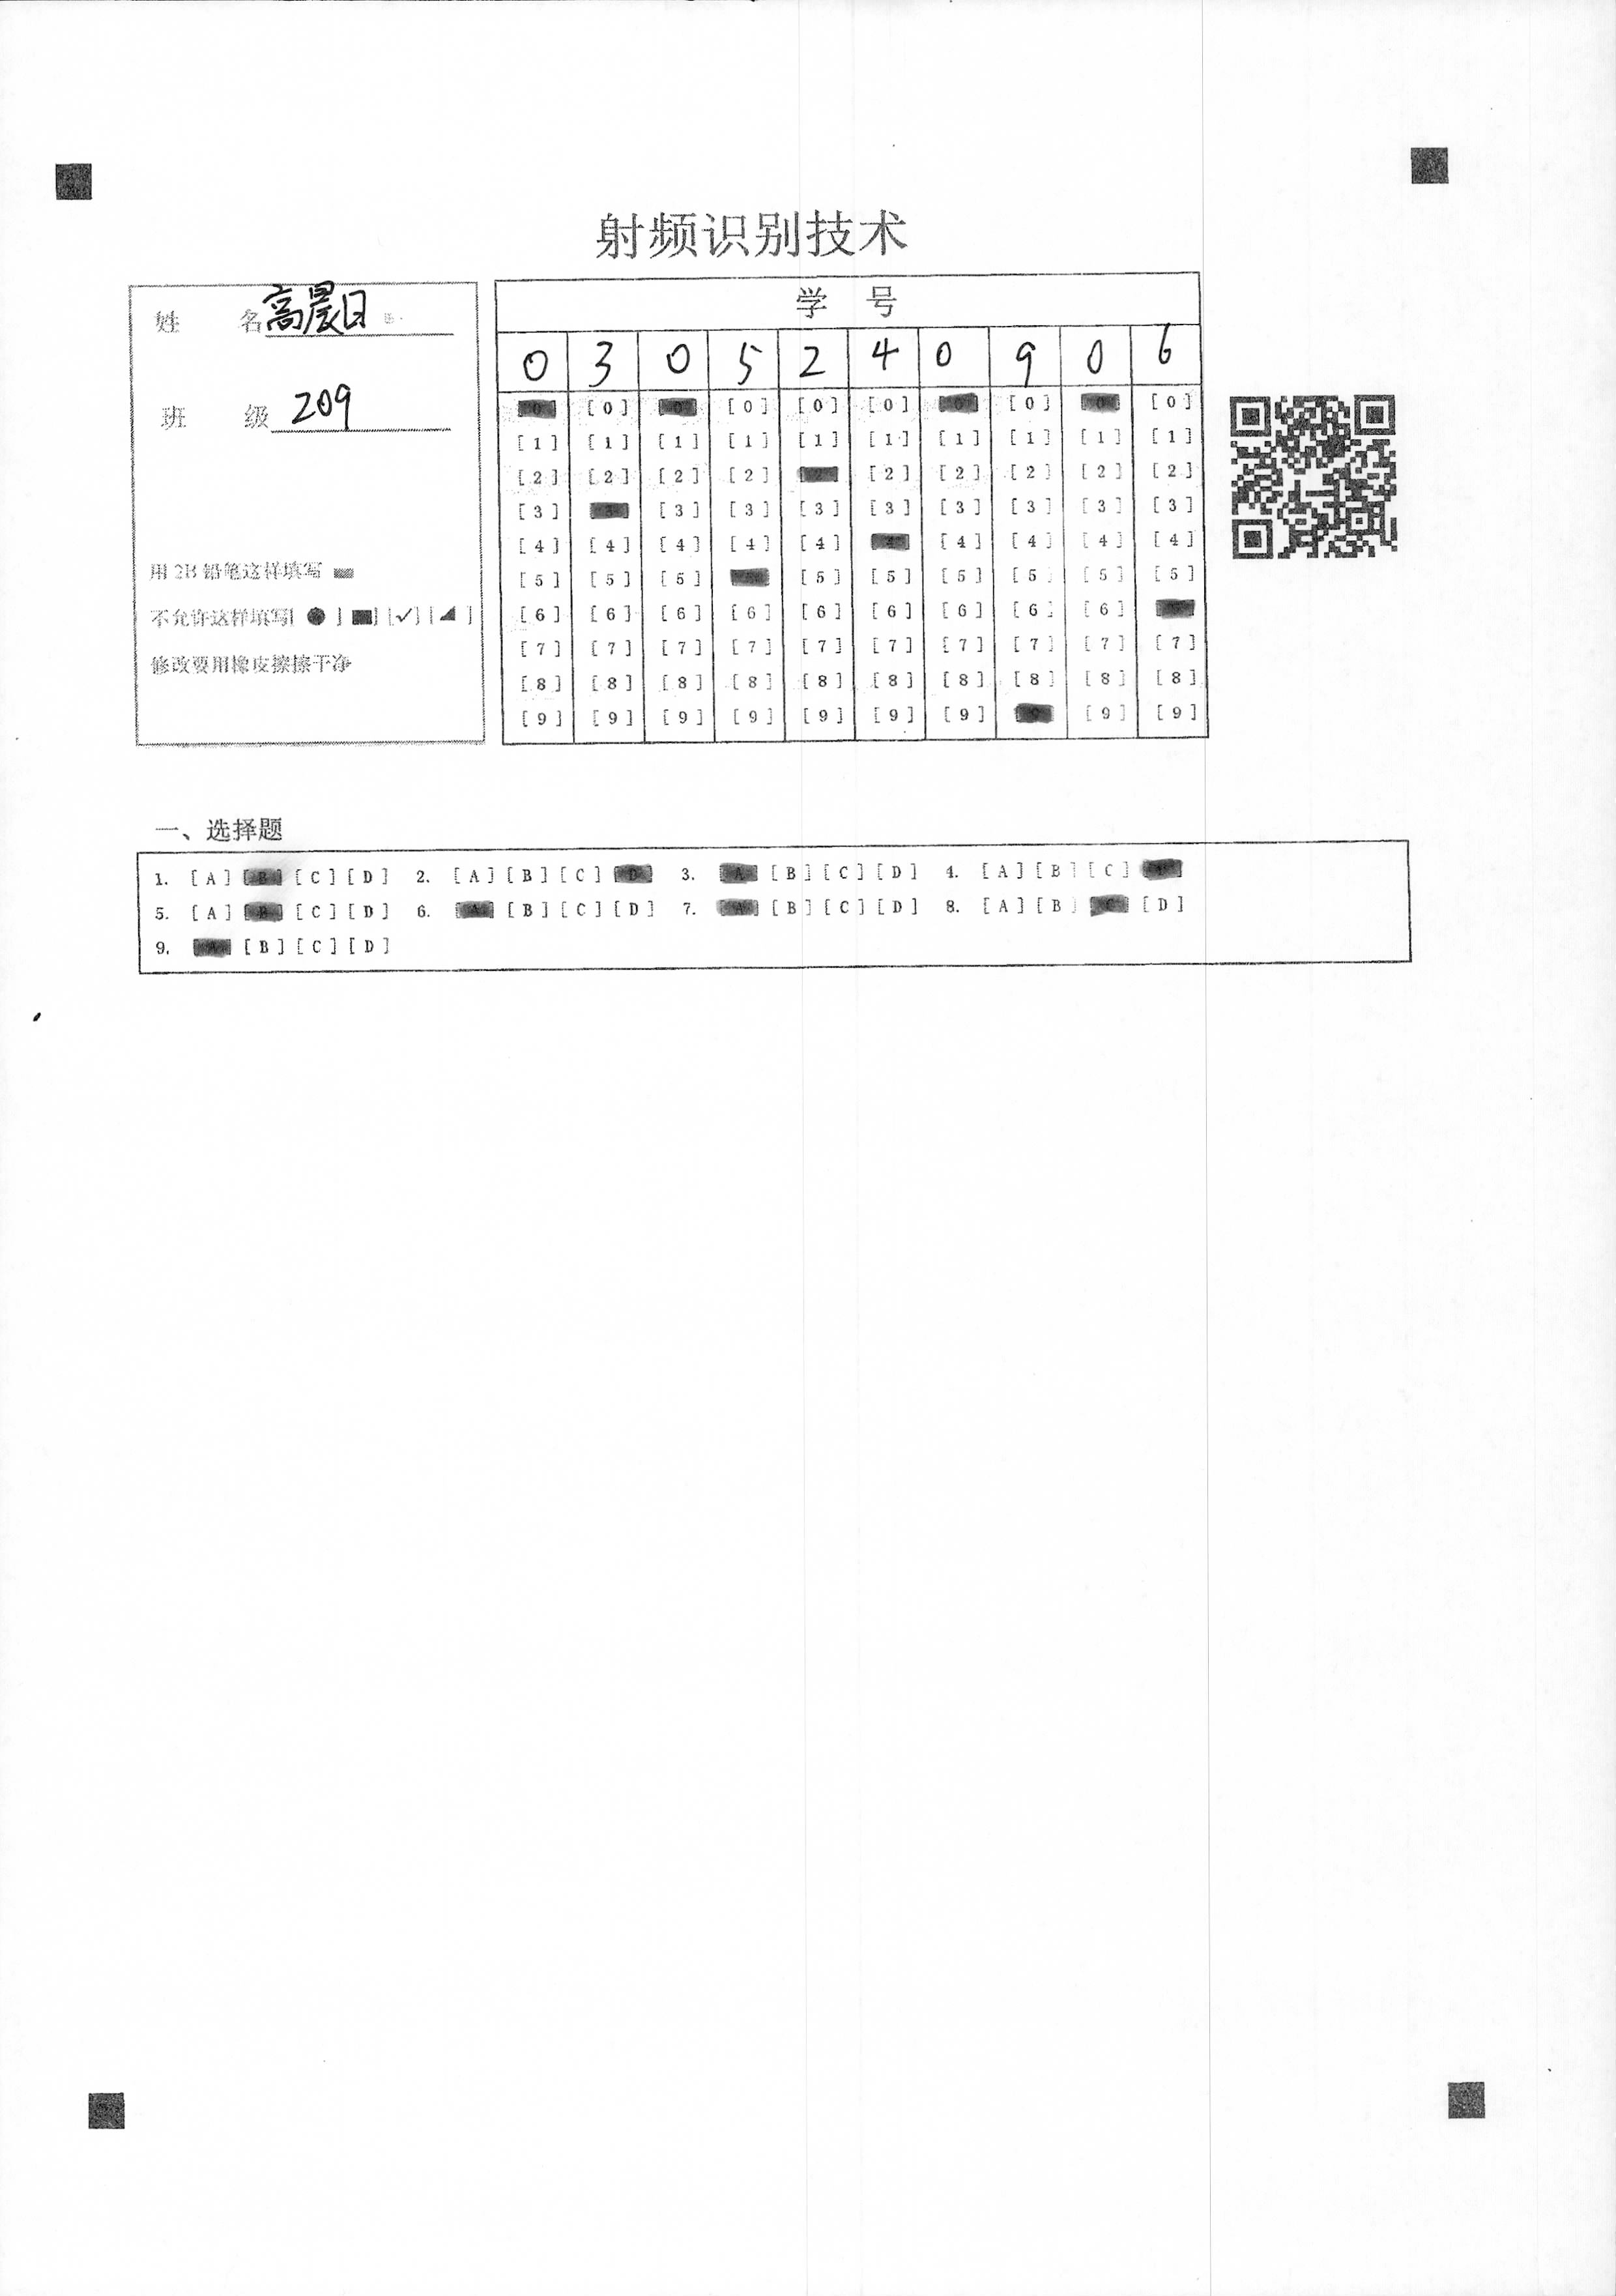 射频识别技术
姓 名 高晨日
班 级 209
用 2B 铅笔这样填写
不允许这样填写[●] [■] [✓] [◢]
修改要用橡皮擦擦干净
学 号
0 3 0 5 2 4 0 9 0 6
[0] [0] [0] [0] [0] [0] [0] [0] [0] [0]
[1] [1] [1] [1] [1] [1] [1] [1] [1] [1]
[2] [2] [2] [2] [2] [2] [2] [2] [2] [2]
[3] [3] [3] [3] [3] [3] [3] [3] [3] [3]
[4] [4] [4] [4] [4] [4] [4] [4] [4] [4]
[5] [5] [5] [5] [5] [5] [5] [5] [5]
[6] [6] [6] [6] [6] [6] [6] [6] [6]
[7] [7] [7] [7] [7] [7] [7] [7] [7] [7]
[8] [8] [8] [8] [8] [8] [8] [8] [8] [8]
[9] [9] [9] [9] [9] [9] [9] [9] [9] [9]
一、选择题
1. [A] [B] [C] [D] 2. [A] [B] [C] [D] 3. [A] [B] [C] [D] 4. [A] [B] [C]
5. [A] [B] [C] [D] 6. [A] [B] [C] [D] 7. [A] [B] [C] [D] 8. [A] [B] [C] [D]
9. [A] [B] [C] [D]